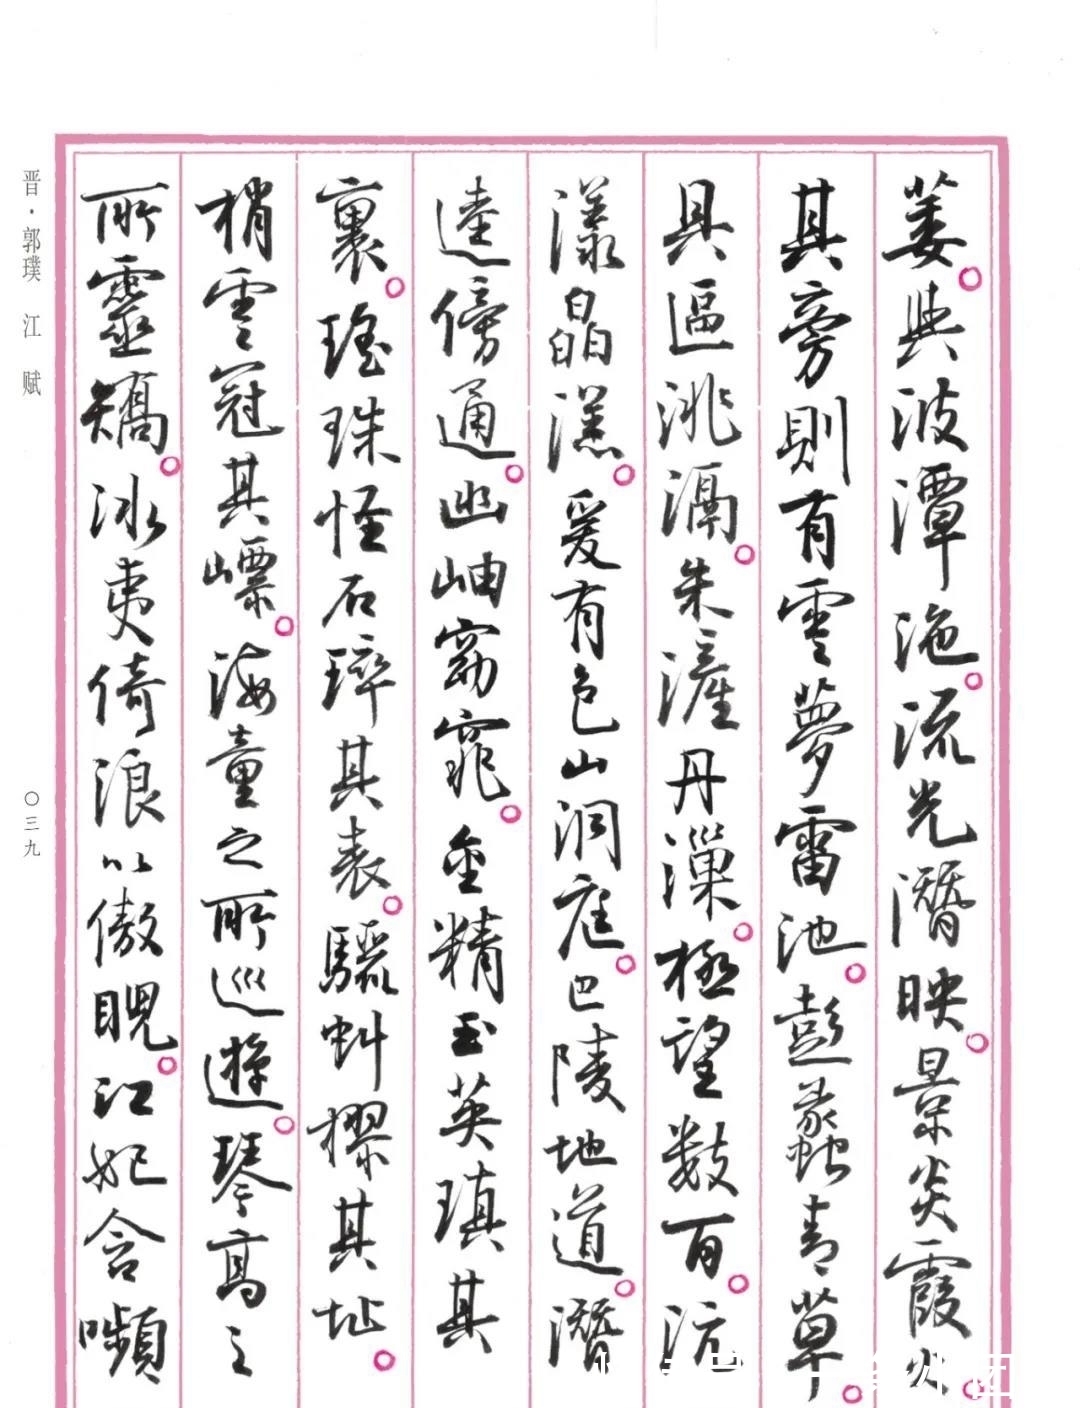 萎。與波潭沲。流光潛映。景炎霞火。
其旁則有雲夢雷池。彭蠡青草。
具區洮滆。朱滻丹漅。極望數百。沆
漾皛溔。爰有包山洞庭。巴陵地道。潛
逵傍通。幽岫窈窕。金精玉英瑱其
裏。瑤珠怪石琗其表。驪虯樛其址。
梢雲冠其㟽。海童之所巡遊。琴高之
所靈矯。冰夷倚浪以傲睨。江妃含嚬
晋·郭璞 江 赋
〇三九